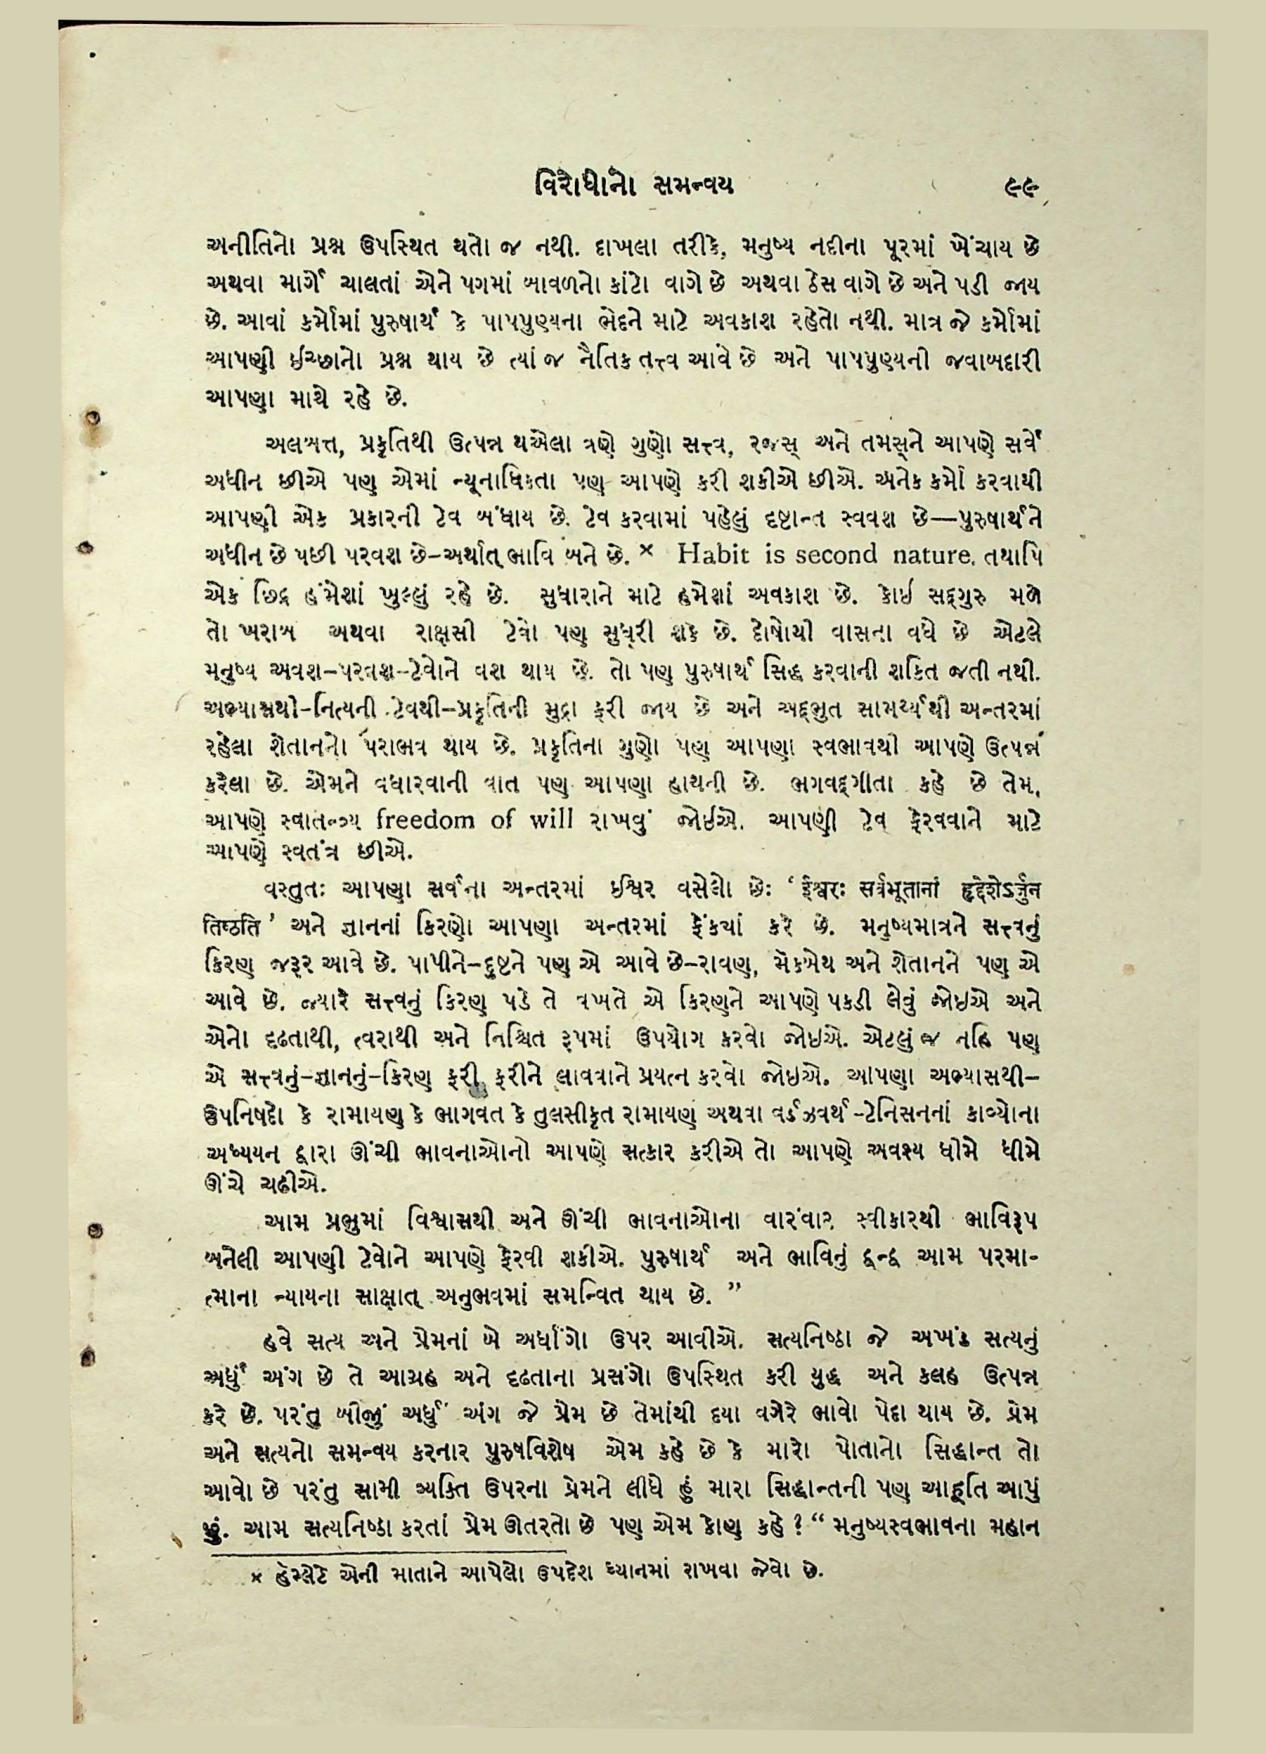 વિરોધીનો સમન્વય ૯૯
અનીતિનો પ્રશ્ન ઉપસ્થિત થતો જ નથી. દાખલા તરીકે, મનુષ્ય નદીના પૂરમાં ખેંચાય છે
અથવા માર્ગે ચાલતાં એને પગમાં બાવળનો કાંટો વાગે છે અથવા ઠેસ વાગે છે અને પડી જાય
છે. આવાં કર્મોમાં પુરુષાર્થ કે પાપપુણ્યના ભેદને માટે અવકાશ રહેતો નથી. માત્ર જે કર્મોમાં
આપણી ઈચ્છાનો પ્રશ્ન થાય છે ત્યાં જ નૈતિક તત્ત્વ આવે છે અને પાપપુણ્યની જવાબદારી
આપણા માથે રહે છે.
અલબત્ત, પ્રકૃતિથી ઉત્પન્ન થએલા ત્રણે ગુણો સત્ત્વ, રજસ્ અને તમસ્‌ને આપણે સર્વે
અધીન છીએ પણ એમાં ન્યૂનાધિકતા પણ આપણે કરી શકીએ છીએ. અનેક કર્મો કરવાથી
આપણી એક પ્રકારની ટેવ બંધાય છે. ટેવ કરવામાં પહેલું દષ્ટાન્ત સ્વવશ છે—પુરુષાર્થને
અધીન છે પછી પરવશ છે–અર્થાત્ ભાવિ બને છે. × Habit is second nature. તથાપિ
એક છિદ્ર હંમેશાં ખુલ્લું રહે છે. સુધારાને માટે હમેશાં અવકાશ છે. કોઇ સદ્‌ગુરુ મળે
તો ખરાબ અથવા રાક્ષસી ટેવો પણ સુધરી શકે છે. દોષોથી વાસના વધે છે એટલે
મનુષ્ય અવશ–પરવશ–ટેવોને વશ થાય છે. તો પણ પુરુષાર્થ સિદ્ધ કરવાની શકિત જતી નથી.
અભ્યાસથી–નિત્યની ટેવથી–પ્રકૃતિની મુદ્રા ફરી જાય છે અને અદ્‌ભુત સામર્થ્યથી અન્તરમાં
રહેલા શેતાનનો પરાભવ થાય છે. પ્રકૃતિના ગુણો પણ આપણા સ્વભાવથી આપણે ઉત્પન્ન
કરેલા છે. એમને વધારવાની વાત પણ આપણા હાથની છે. ભગવદ્‌ગીતા કહે છે તેમ,
આપણે સ્વાતન્ત્ર્ય freedom of will રાખવું જોઇએ. આપણી ટેવ ફેરવવાને માટે
આપણે સ્વતંત્ર છીએ.
વસ્તુતઃ આપણા સર્વના અન્તરમાં ઈશ્વર વસેલો છેઃ ‘ ईश्वरः सर्वभूतानां हृद्देशेऽर्जुन
तिष्ठति ’ અને જ્ઞાનનાં કિરણો આપણા અન્તરમાં ફેંકયાં કરે છે. મનુષ્યમાત્રને સત્ત્વનું
કિરણ જરૂર આવે છે. પાપીને–દુષ્ટને પણ એ આવે છે–રાવણ, મેકબેથ અને શેતાનને પણ એ
આવે છે. જ્યારે સત્ત્વનું કિરણ પડે તે વખતે એ કિરણને આપણે પકડી લેવું જોઇએ અને
એનો દૃઢતાથી, ત્વરાથી અને નિશ્ચિત રૂપમાં ઉપયોગ કરવો જોઇએ. એટલું જ નહિ પણ
એ સત્ત્વનું–જ્ઞાનનું–કિરણ ફરી ફરીને લાવવાને પ્રયત્ન કરવો જોઇએ. આપણા અભ્યાસથી–
ઉપનિષદો કે રામાયણ કે ભાગવત કે તુલસીકૃત રામાયણ અથવા વર્ડઝવર્થ-ટેનિસનનાં કાવ્યોના
અધ્યયન દ્વારા ઊંચી ભાવનાઓનો આપણે સત્કાર કરીએ તો આપણે અવશ્ય ધીમે ધીમે
ઊંચે ચઢીએ.
આમ પ્રભુમાં વિશ્વાસથી અને ઊંચી ભાવનાઓના વારંવાર સ્વીકારથી ભાવિરૂપ
બનેલી આપણી ટેવોને આપણે ફેરવી શકીએ. પુરુષાર્થ અને ભાવિનું દ્વન્દ્વ આમ પરમા-
ત્માના ન્યાયના સાક્ષાત્ અનુભવમાં સમન્વિત થાય છે. ”
હવે સત્ય અને પ્રેમનાં બે અર્ધાંગો ઉપર આવીએ. સત્યનિષ્ઠા જે અખંડ સત્યનું
અર્ધું અંગ છે તે આગ્રહ અને દૃઢતાના પ્રસંગો ઉપસ્થિત કરી યુદ્ધ અને કલહ ઉત્પન્ન
કરે છે. પરંતુ બીજું અર્ધું અંગ જે પ્રેમ છે તેમાંથી દયા વગેરે ભાવો પેદા થાય છે. પ્રેમ
અને સત્યનો સમન્વય કરનાર પુરુષવિશેષ એમ કહે છે કે મારો પોતાનો સિદ્ધાન્ત તો
આવો છે પરંતુ સામી વ્યક્તિ ઉપરના પ્રેમને લીધે હું મારા સિદ્ધાન્તની પણ આહૂતિ આપું
છું. આમ સત્યનિષ્ઠા કરતાં પ્રેમ ઊતરતો છે પણ એમ કોણ કહે ? “ મનુષ્યસ્વભાવના મહાન
× હૅમ્લેટે એની માતાને આપેલો ઉપદેશ ધ્યાનમાં રાખવા જેવો છે.